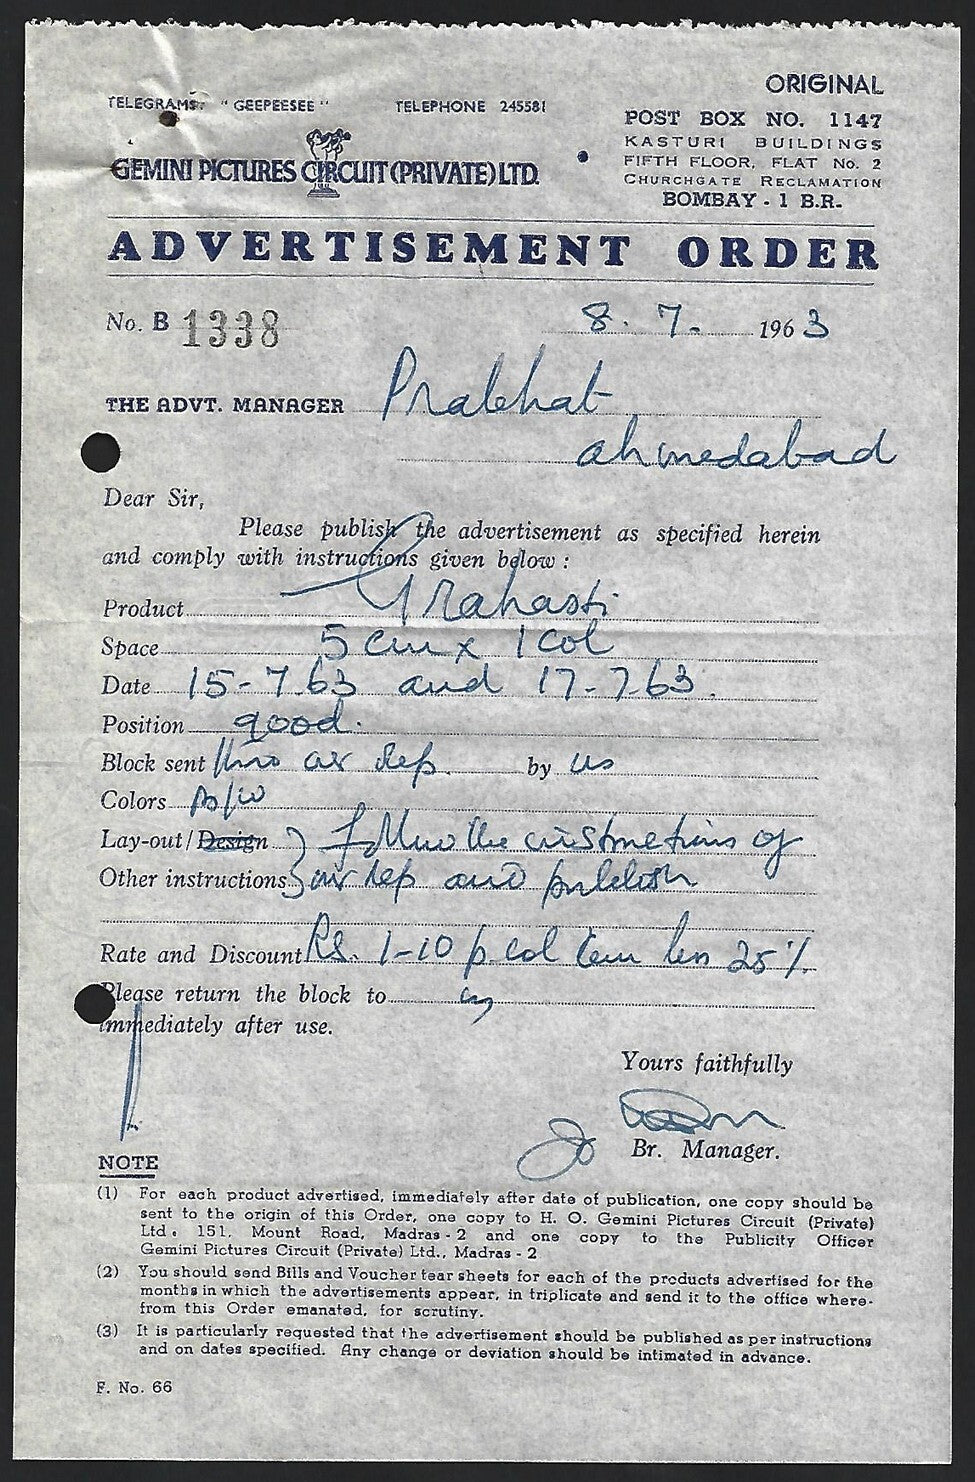 ORIGINAL
TELEGRAMS: "GEEPEESEE" TELEPHONE 245581
GEMINI PICTURES CIRCUIT (PRIVATE) LTD.
POST BOX NO. 1147
KASTURI BUILDINGS
FIFTH FLOOR, FLAT No. 2
CHURCHGATE RECLAMATION
BOMBAY - 1 B.R.
ADVERTISEMENT ORDER
No. B 1338
8. 7. 1963
THE ADVT. MANAGER Prabhat
ahmedabad
Dear Sir,
Please publish the advertisement as specified herein
and comply with instructions given below :
Product Grahasti
Space 5 cm x 1 col
Date 15-7.63 and 17-7.63.
Position good.
Block sent thro our rep. by us
Colors B/W
Lay-out/Design } follow the instructions of
Other instructions } our rep and publish
Rate and Discount Rs. 1-10 p col cm less 25%.
Please return the block to us
immediately after use.
Yours faithfully
Br. Manager.
NOTE
(1) For each product advertised, immediately after date of publication, one copy should be
sent to the origin of this Order, one copy to H. O. Gemini Pictures Circuit (Private)
Ltd. 151, Mount Road, Madras - 2 and one copy to the Publicity Officer
Gemini Pictures Circuit (Private) Ltd., Madras - 2
(2) You should send Bills and Voucher tear sheets for each of the products advertised for the
months in which the advertisements appear, in triplicate and send it to the office where-
from this Order emanated, for scrutiny.
(3) It is particularly requested that the advertisement should be published as per instructions
and on dates specified. Any change or deviation should be intimated in advance.
F. No. 66